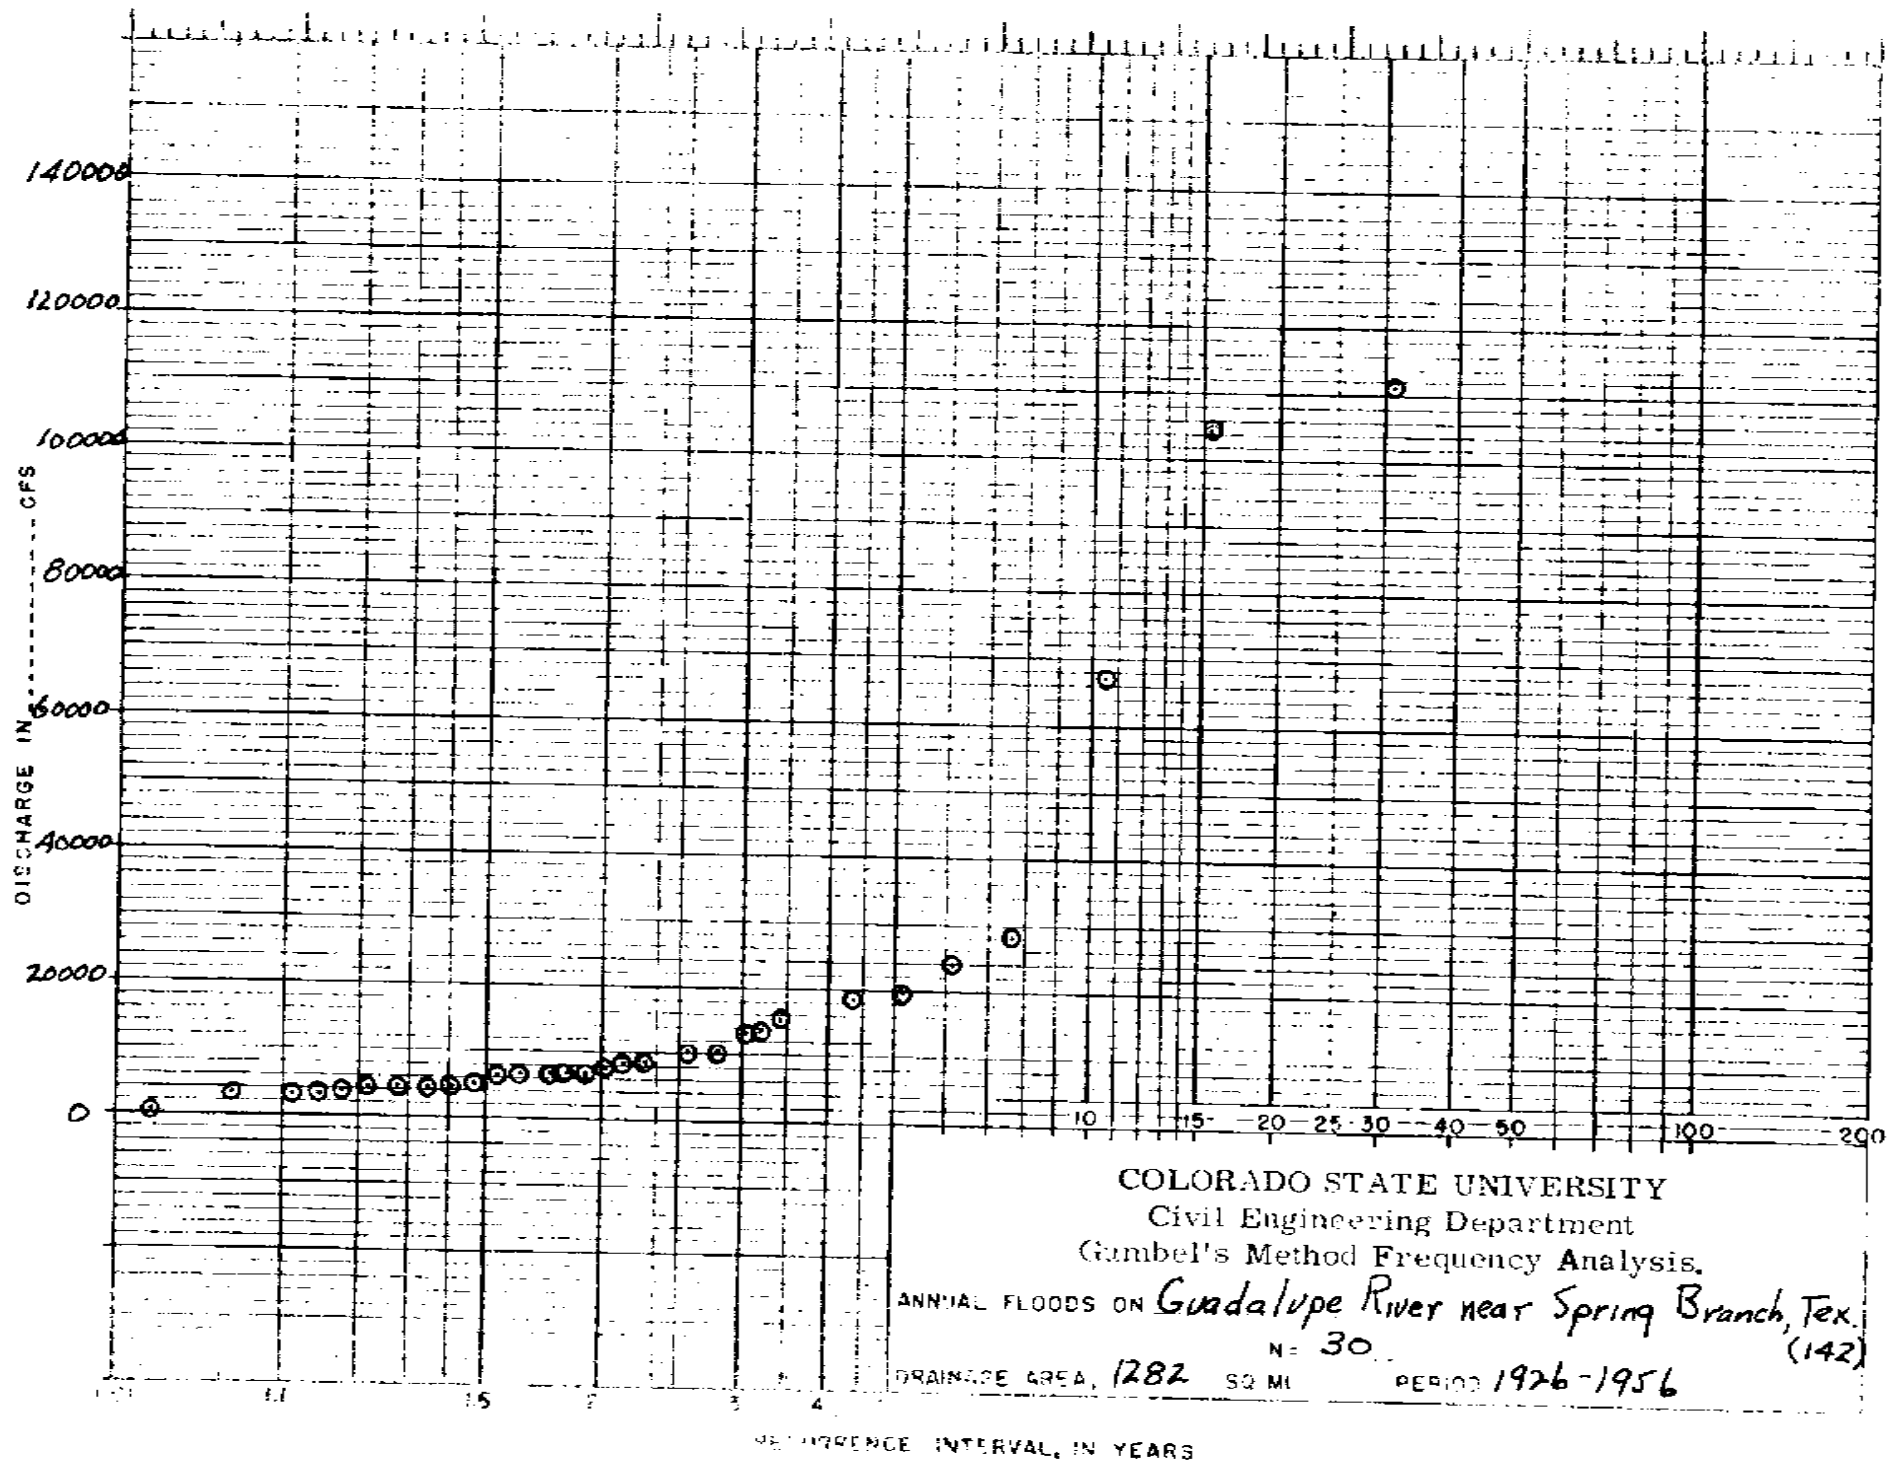 140000
120000
100000
80000
60000
40000
20000
0
DISCHARGE IN CFS
10 15 20 25 30 40 50 100 200
COLORADO STATE UNIVERSITY
Civil Engineering Department
Gumbel's Method Frequency Analysis.
ANNUAL FLOODS ON Guadalupe River near Spring Branch, Tex.
N= 30 (142)
DRAINAGE AREA, 1282 SQ MI PERIOD 1926-1956
1.1 1.5 2 3 4
RECURRENCE INTERVAL, IN YEARS